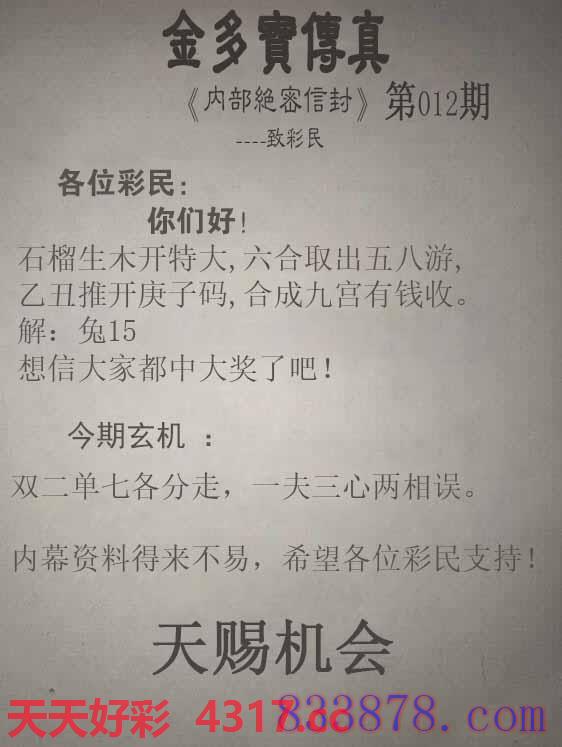 金多寶傳真
《内部絶密信封》第012期
----致彩民
各位彩民:
你们好!
石榴生木开特大,六合取出五八游,
乙丑推开庚子码,合成九宫有钱收。
解：兔15
想信大家都中大奖了吧！
今期玄机 ：
双二单七各分走，一夫三心两相误。
内幕资料得来不易，希望各位彩民支持！
天赐机会
天天好彩 4317.cc
833878.com